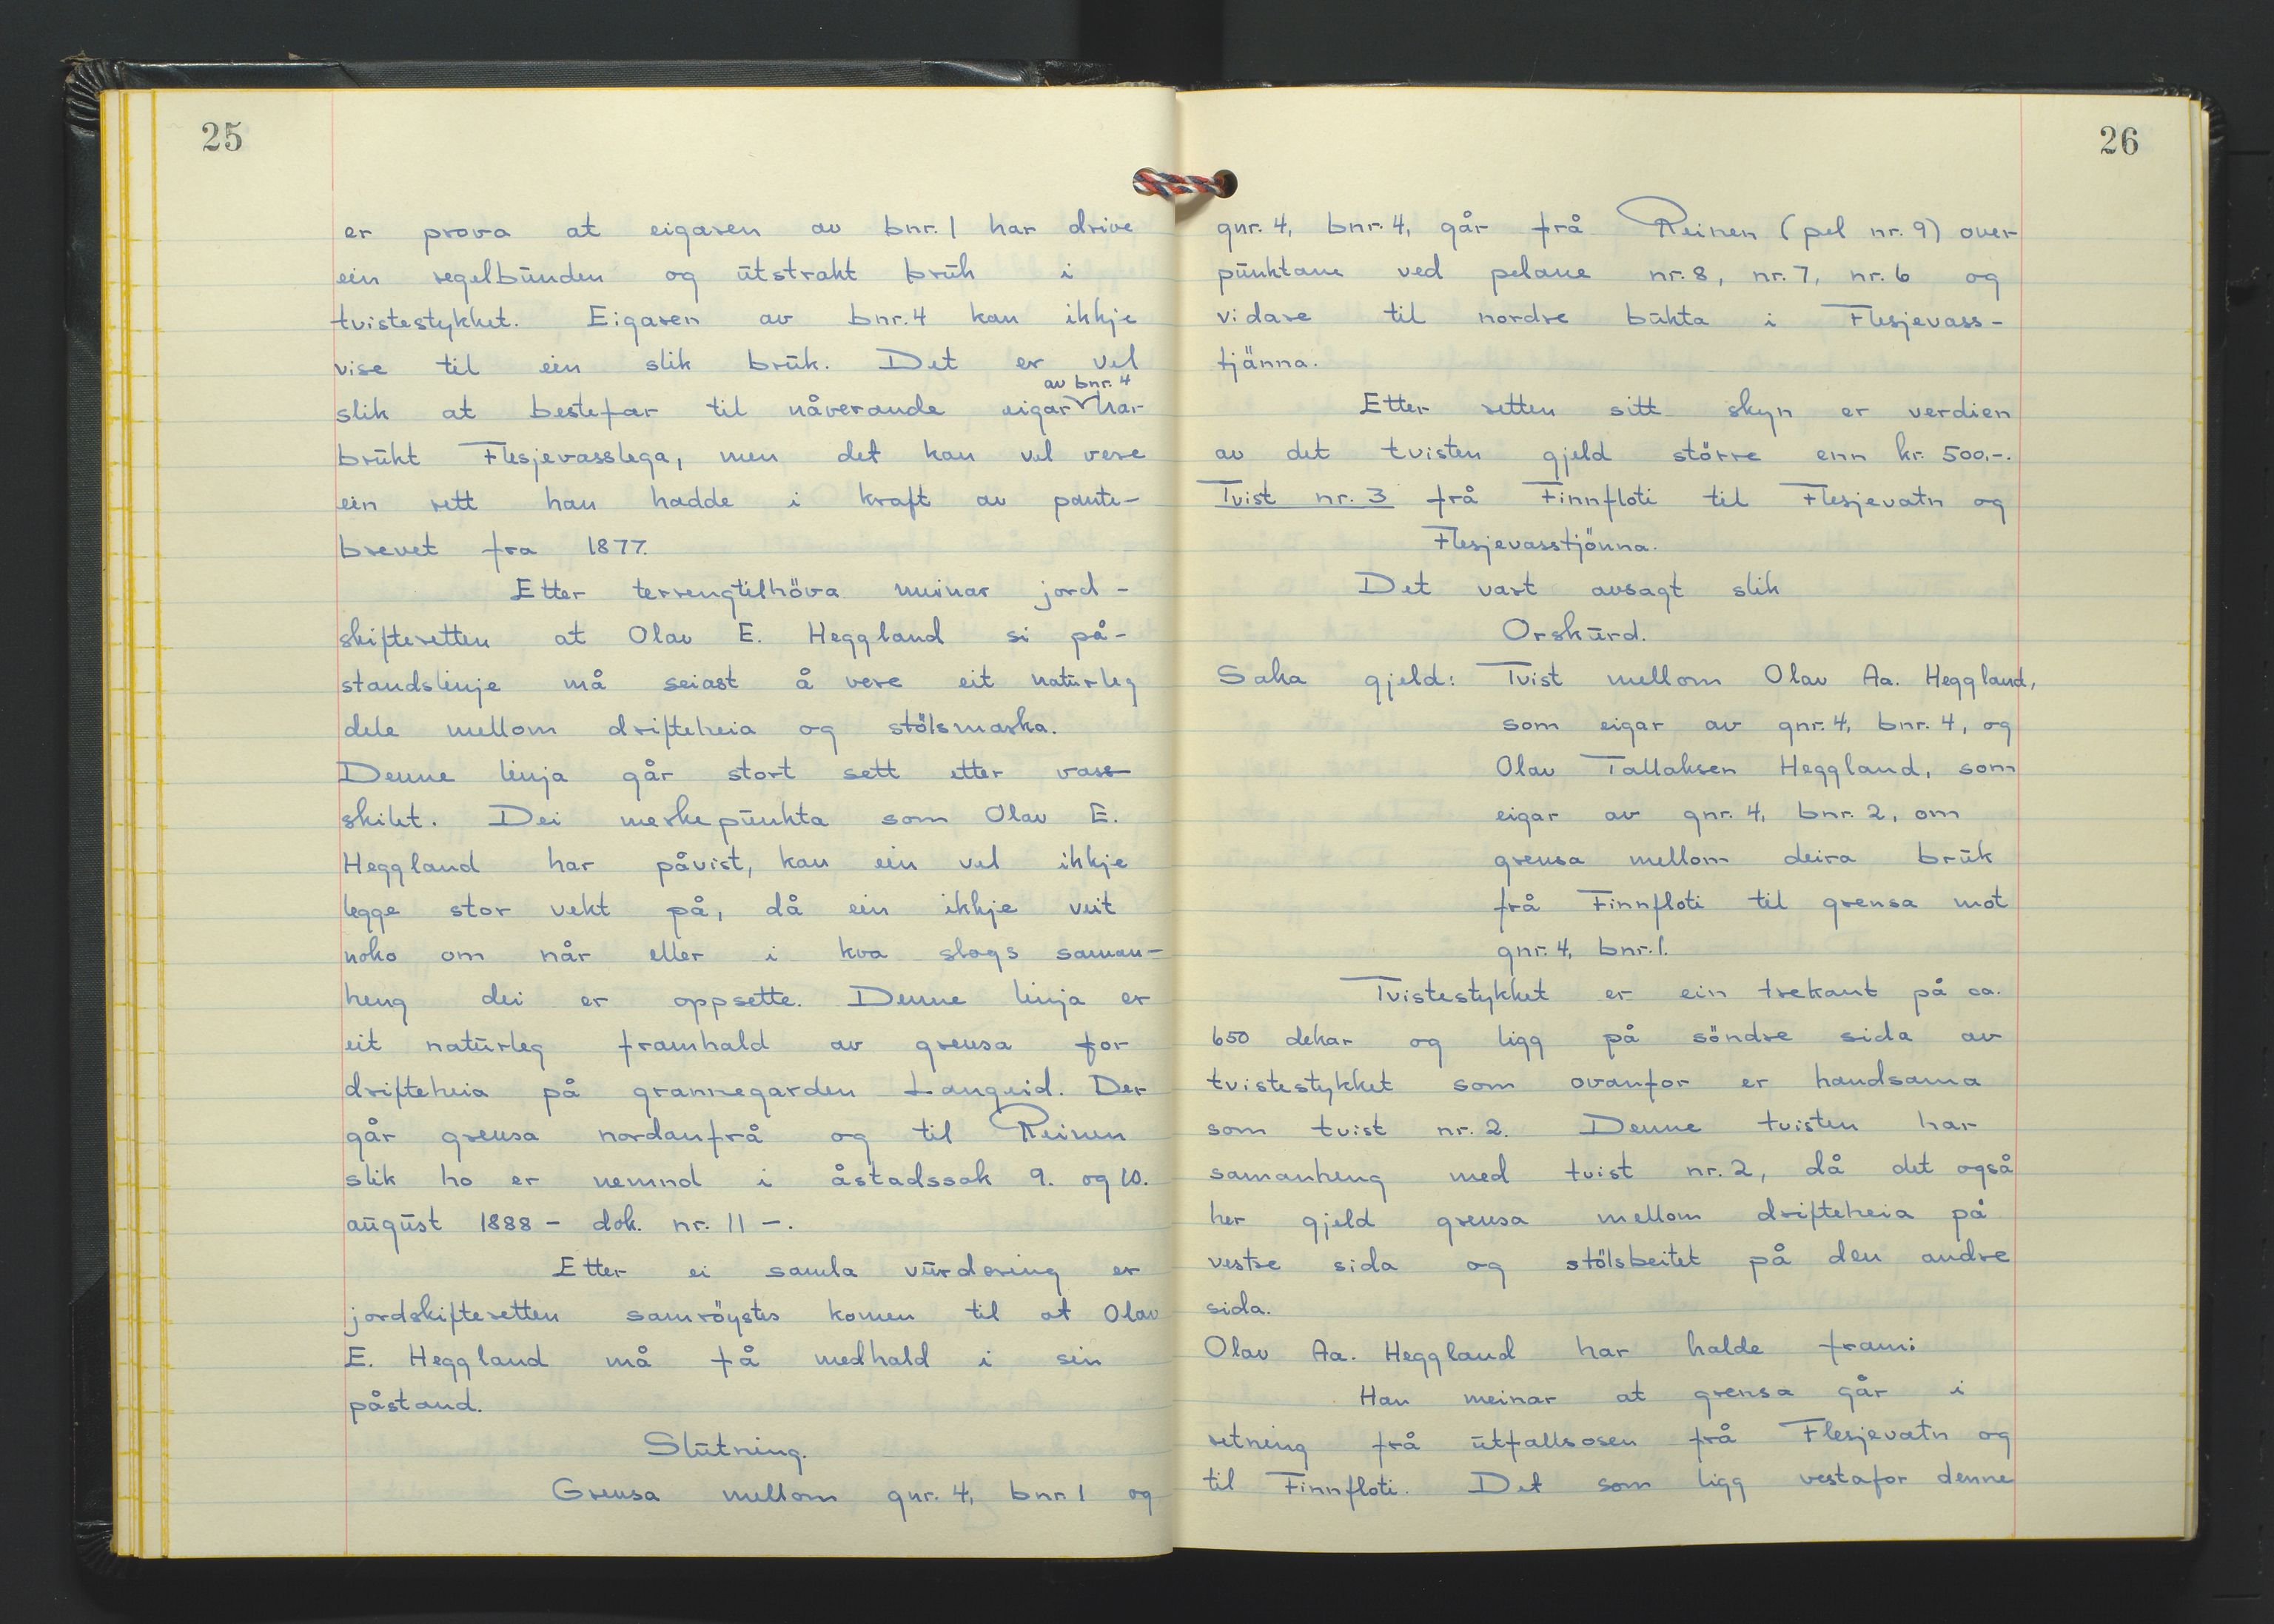 25
er prova at eigaren av bnr. 1 har drive
ein regelbunden og utstrakt bruk i
tvistestykket. Eigaren av bnr. 4 kan ikkje
vise til ein slik bruk. Det er vel
av bnr. 4
slik at bestefar til nåverande eigar har
brukt Flesjevasslega, men det kan vel vere
ein rett han hadde i kraft av pante-
brevet fra 1877.
Etter terrengtilhöva meinar jord-
skifteretten at Olav E. Heggland si på-
standslinje må seiast å vere eit naturleg
dele mellom drifteheia og stölsmarka.
Denne linja går stort sett etter vass-
skilet. Dei merkepunkta som Olav E.
Heggland har påvist, kan ein vel ikkje
legge stor vekt på, då ein ikkje veit
noko om når eller i kva slags saman-
heng dei er oppsette. Denne linja er
eit naturleg framhald av grensa for
drifteheia på grannegarden Langeid. Der
går grensa nordanfrå og til Reinen
slik ho er nemnd i åstadssak 9. og 10.
august 1888 - dok. nr. 11 -.
Etter ei samla vurdering er
jordskifteretten samröystes komen til at Olav
E. Heggland må få medhald i sin
påstand.
Slutning.
Grensa mellom gnr. 4, bnr. 1 og
26
gnr. 4, bnr. 4, går frå Reinen (pel nr. 9) over
punktane ved pelane nr. 8, nr. 7, nr. 6 og
vidare til nordre bukta i Flesjevass-
tjänna.
Etter retten sitt skyn er verdien
av det tvisten gjeld större enn kr. 500,-.
Tvist nr. 3 frå Finnfloti til Flesjevatn og
Flesjevasstjönna.
Det vart avsagt slik
Orskurd.
Saka gjeld: Tvist mellom Olav Aa. Heggland,
som eigar av gnr. 4, bnr. 4, og
Olav Tallaksen Heggland, som
eigar av gnr. 4, bnr. 2, om
grensa mellom deira bruk
frå Finnfloti til grensa mot
gnr. 4, bnr. 1.
Tvistestykket er ein trekant på ca.
650 dekar og ligg på söndre sida av
tvistestykket som ovanfor er handsama
som tvist nr. 2. Denne tvisten har
samanheng med tvist nr. 2, då det også
her gjeld grensa mellom drifteheia på
vestre sida og stölsbeitet på den andre
sida.
Olav Aa. Heggland har halde fram:
Han meinar at grensa går i
retning frå utfallsosen frå Flesjevatn og
til Finnfloti. Det som ligg vestafor denne